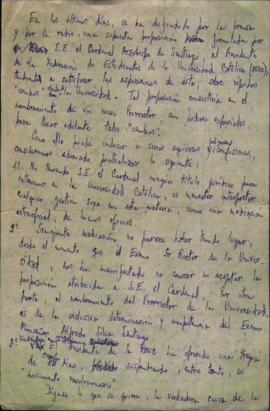 En los últimos días, se ha difundido por la prensa
y por la radio, una supuesta proposición formulada por
S.E. el Cardenal Arzobispo de Santiago, al Presidente
de la Federación de Estudiantes de la Universidad Católica (FEUC),
a satisfacer las aspiraciones de ésta, sobre rápidos
"cambios" Universidad. Tal proposición consistiría en el
nombramiento de un nuevo Prorrector, con poderes especiales,
para llevar adelante tales "cambios".
Como ello puede inducir a serios equívocos y confusiones,
consideramos adecuado puntualizar lo siguiente:
1º. No teniendo S.E. el Cardenal ningún título jurídico para
intervenir en la Universidad Católica, se interpretar
cualquier gestión suya en esta materia, como una mediación
extraoficial, de buenos oficios.
2º. Semejante mediación no parece haber tenido lugar,
desde el momento que el Excmo Sr Rector de la Univer-
sidad, nos ha manifestado no conocer ni aceptar la
proposición atribuida a S.E. el Cardenal. Por otra
parte, el nombramiento del Prorrector de la Universidad,
es de la exclusiva determinación y competencia del Excmo
Monseñor Alfredo Silva Santiago
3º El Presidente de la FEUC ha ofrecido una tregua
de suspendiendo, entre tanto, su
"movimiento revolucionario"
Dígase lo que se quiera, la verdadera causa de la